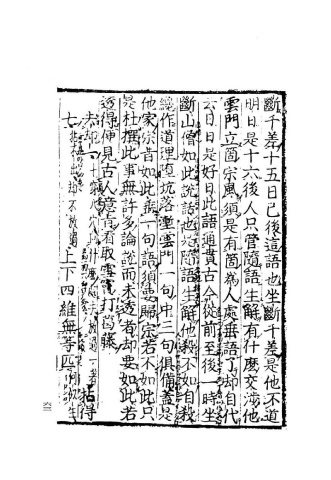 斷千差十五日已後這語也坐斷千差是他不道
明日是十六後人只管隨語生解有什麼交涉他
雲門立箇宗風須是有箇為人處垂語了却自代
云日日是好日此語通貫古今從前至後一時坐
斷山僧如此說話也是隨語生解他殺不如自殺
纔作道理墮坑落壍雲門一句中三句俱備蓋是
他家宗旨如此垂一句語須要歸宗若不如此只
是杜撰此事無許多論說而未透者却要如此若
透得便見古人意旨看取雪竇打葛藤
去却一 穿八穴 什麼處去放過一著 拈得
七 拈不出却不放過 上下四維無等匹